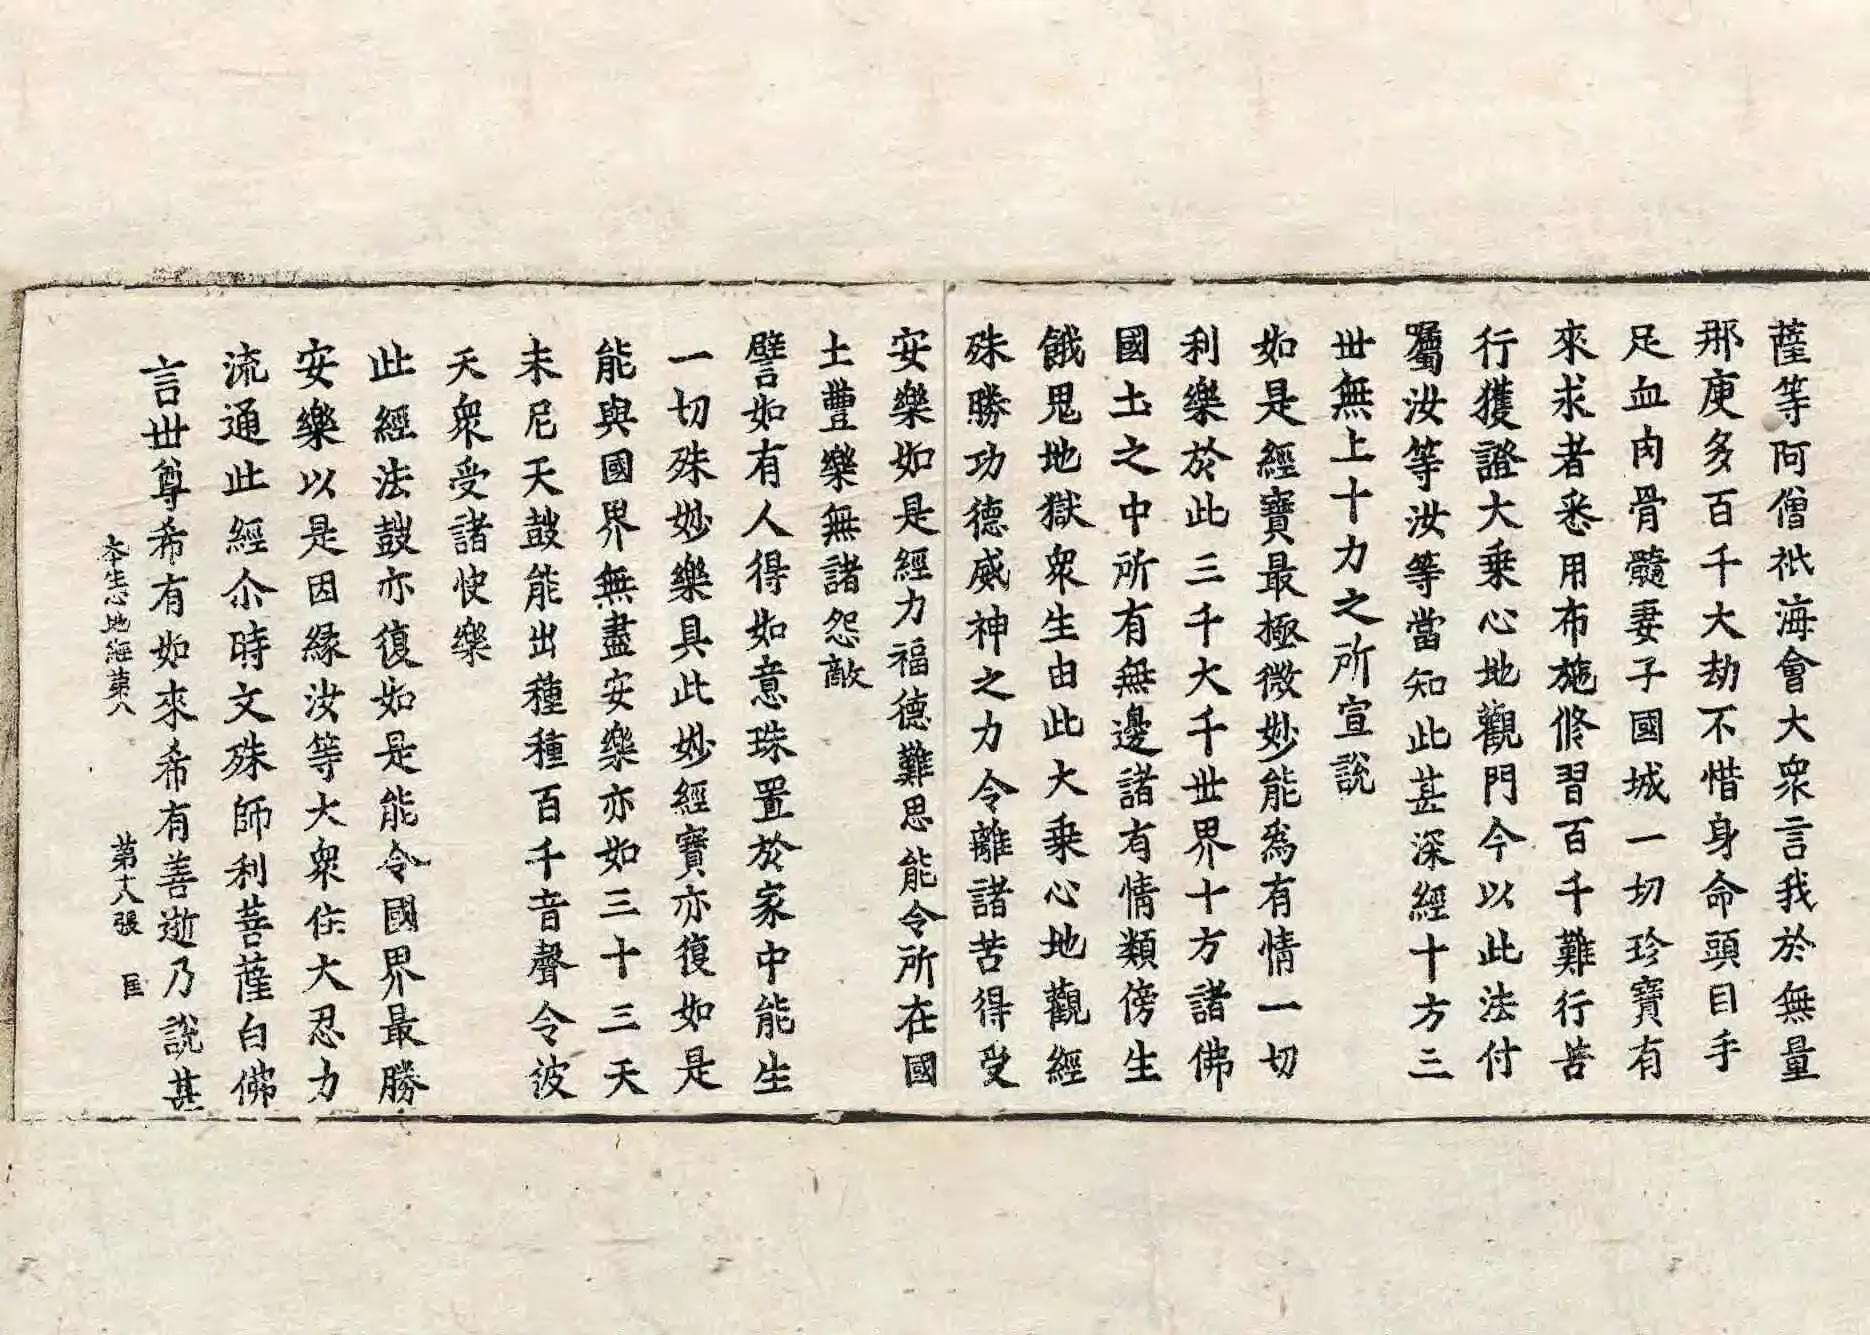 薩等阿僧祇海會大衆言我於無量
那庾多百千大劫不惜身命頭目手
足血肉骨髓妻子國城一切珍寶有
來求者悉用布施修習百千難行苦
行獲證大乗心地觀門今以此法付
囑汝等汝等當知此甚深經十方三
世無上十力之所宣說
如是經寶最極微妙能爲有情一切
利樂於此三千大千世界十方諸佛
國土之中所有無邊諸有情類傍生
餓鬼地獄衆生由此大乗心地觀經
殊勝功德威神之力令離諸苦得受
安樂如是經力福德難思能令所在國
土豐樂無諸怨敵
譬如有人得如意珠置於家中能生
一切殊妙樂具此妙經寶亦復如是
能與國界無盡安樂亦如三十三天
末尼天鼓能出種種百千音聲令彼
天衆受諸快樂
此經法鼓亦復如是能令國界最勝
安樂以是因緣汝等大衆住大忍力
流通此經尒時文殊師利菩薩白佛
言世尊希有如來希有善逝乃說甚
本生心地經第八　第十八張　匡